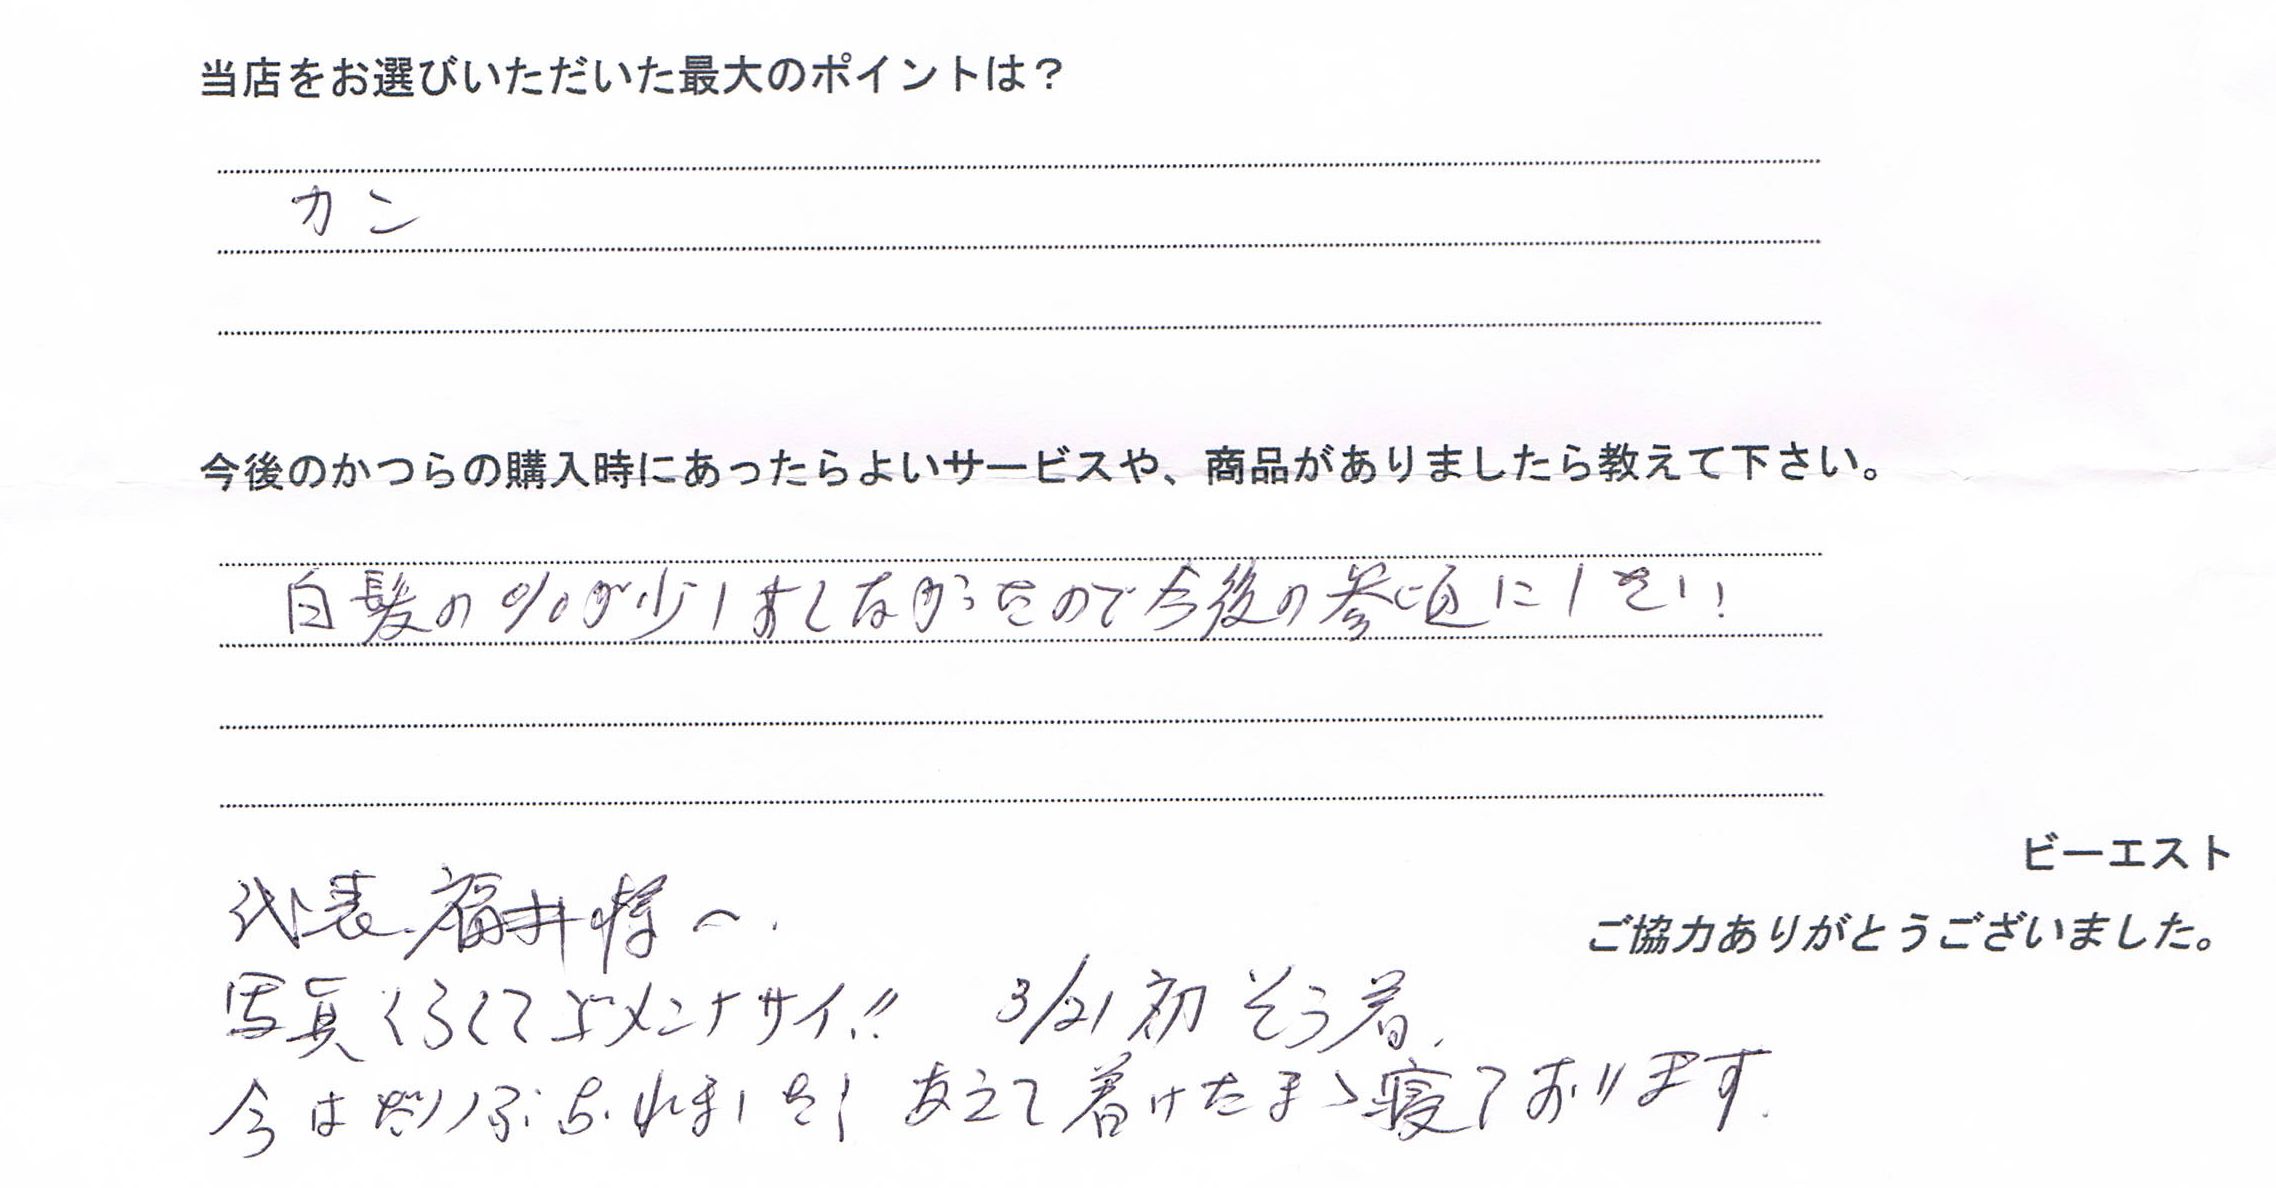 当店をお選びいただいた最大のポイントは？
カン
今後のかつらの購入時にあったらよいサービスや、商品がありましたら教えて下さい。
白髪の%が少し なかったので今後の参考にしたい!
ビーエスト
ご協力ありがとうございました。
代表 福井様へ.
写真くらくてゴメンナサイ!! 3/21初そう着.
今はだいぶなれました! あえて着けたまゝ寝ております.